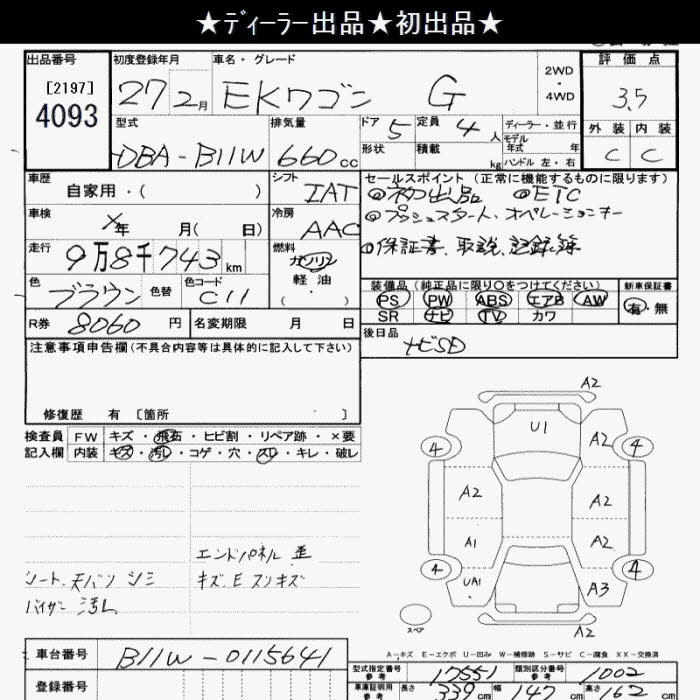 ★ディーラー出品★初出品★
出品番号
[2197]
4093
初度登録年月
27年2月
車名・グレード
EKワゴン G
2WD
・
4WD
評価点
3.5
外装 内装
C C
型式
DBA-B11W
排気量
660cc
ドア 5
形状
定員 4人
積載 kg
ディーラー・並行
モデル年式 年
ハンドル 左・右
車歴
自家用・( )
シフト
IAT
セールスポイント(正常に機能するものに限ります)
◎初出品 ◎ETC
◎プッシュスタート、オペレーションキー
◎保証書、取説、記録簿
車検
×年 月( 日)
冷房
AAC
走行
9万8千743km
燃料
ガソリン
軽油
・
( )
色
ブラウン
色替
色コード
C11
装備品(純正品に限り○をつけてください)
PS PW ABS エアB AW
SR ナビ TV カワ
新車保証書
有・無
R券 8060円
名変期限 月 日
後日品
ナビSD
注意事項申告欄(不具合内容等は具体的に記入して下さい)
修復歴 有 [箇所 ]
検査員
記入欄
FW キズ・飛石・ヒビ割・リペア跡・×要
内装 キズ・汚レ・コゲ・穴・スレ・キレ・破レ
エンドパネル 歪
シート、天バリ シミ
キズ、E スリキズ
バイザー 汚レ
A2
U1
A2
4
4
A2
A2
A1
A2
4
4
UA1
A3
A2
スペア
A-キズ E-エクボ U-凹み W-補修跡 S-サビ C-腐食 XX-交換済
車台番号
B11W-0115641
登録番号
型式指定番号
参考
17551
類別区分番号
参考
1002
車庫証明用
参考
長さ 339cm
幅 147cm
高さ 162cm